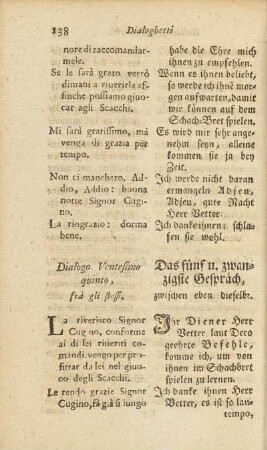 138 Dialoghetti
nore di raccomandar-
mele.
Se le sarà grato verrò
dimani a riverirla af-
finche possiamo giuo-
car agli Scacchi.
Mi sarà gratissimo, má
venga di grazia per
tempo.
Non ci mancherò, Ad-
dio, Addio: buona
notte Signor Cugi-
no.
La ringrazio: dorma
bene.
Dialogo Ventesimo
quinto,
frà gli stessi.
La riverisco Signor
Cugino, conforme
ai di lei riveriti co-
mandi vengo per pro-
fittar da lei nel giuo-
co degli Scacchi.
Le rendo grazie Signor
Cugino, fà già sì lungo
habe die Ehre mich
ihnen zu empfehlen.
Wenn es ihnen beliebt,
so werde ich ihne mor-
gen aufwarten, damit
wir können auf dem
Schach-Bret spielen.
Es wird mir sehr ange-
nehm seyn, alleine
kommen sie ja bey
Zeit.
Ich werde nicht daran
ermangeln Adjeu,
Adjeu, gute Nacht
Herr Vetter.
Ich danke ihnen; schla-
fen sie wohl.
Das fünf u. zwan-
zigste Gespräch,
zwischen eben dieselb.
Ihr Diener Herr
Vetter, laut Dero
geehrte Befehle,
komme ich, um von
ihnen im Schachbret
spielen zu lernen.
Ich danke ihnen Herr
Vetter, es ist so lan-
tempo,